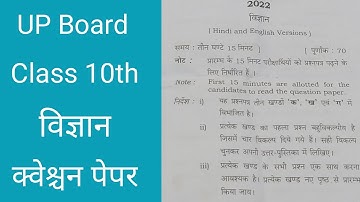 UP Board
Class 10th
विज्ञान
क्वेश्चन पेपर
2022
विज्ञान
( Hindi and English Versions )
समय : तीन घण्टे 15 मिनट ] [ पूर्णांक : 70
नोट : प्रारम्भ के 15 मिनट परीक्षार्थियों को प्रश्नपत्र पढ़ने के
लिए निर्धारित हैं ।
Note : First 15 minutes are allotted for the
candidates to read the question paper.
निर्देश : i) यह प्रश्नपत्र तीन खण्डों 'क', 'ख' एवं 'ग' में
विभाजित है।
ii) प्रत्येक खण्ड का पहला प्रश्न बहुविकल्पीय है
जिसमें चार विकल्प दिये गये हैं। सही विकल्प
चुनकर अपनी उत्तर-पुस्तिका में लिखिए।
iii) प्रत्येक खण्ड के सभी प्रश्न एक साथ करना
आवश्यक है। प्रत्येक खण्ड नए पृष्ठ से प्रारम्भ
किया जाय।